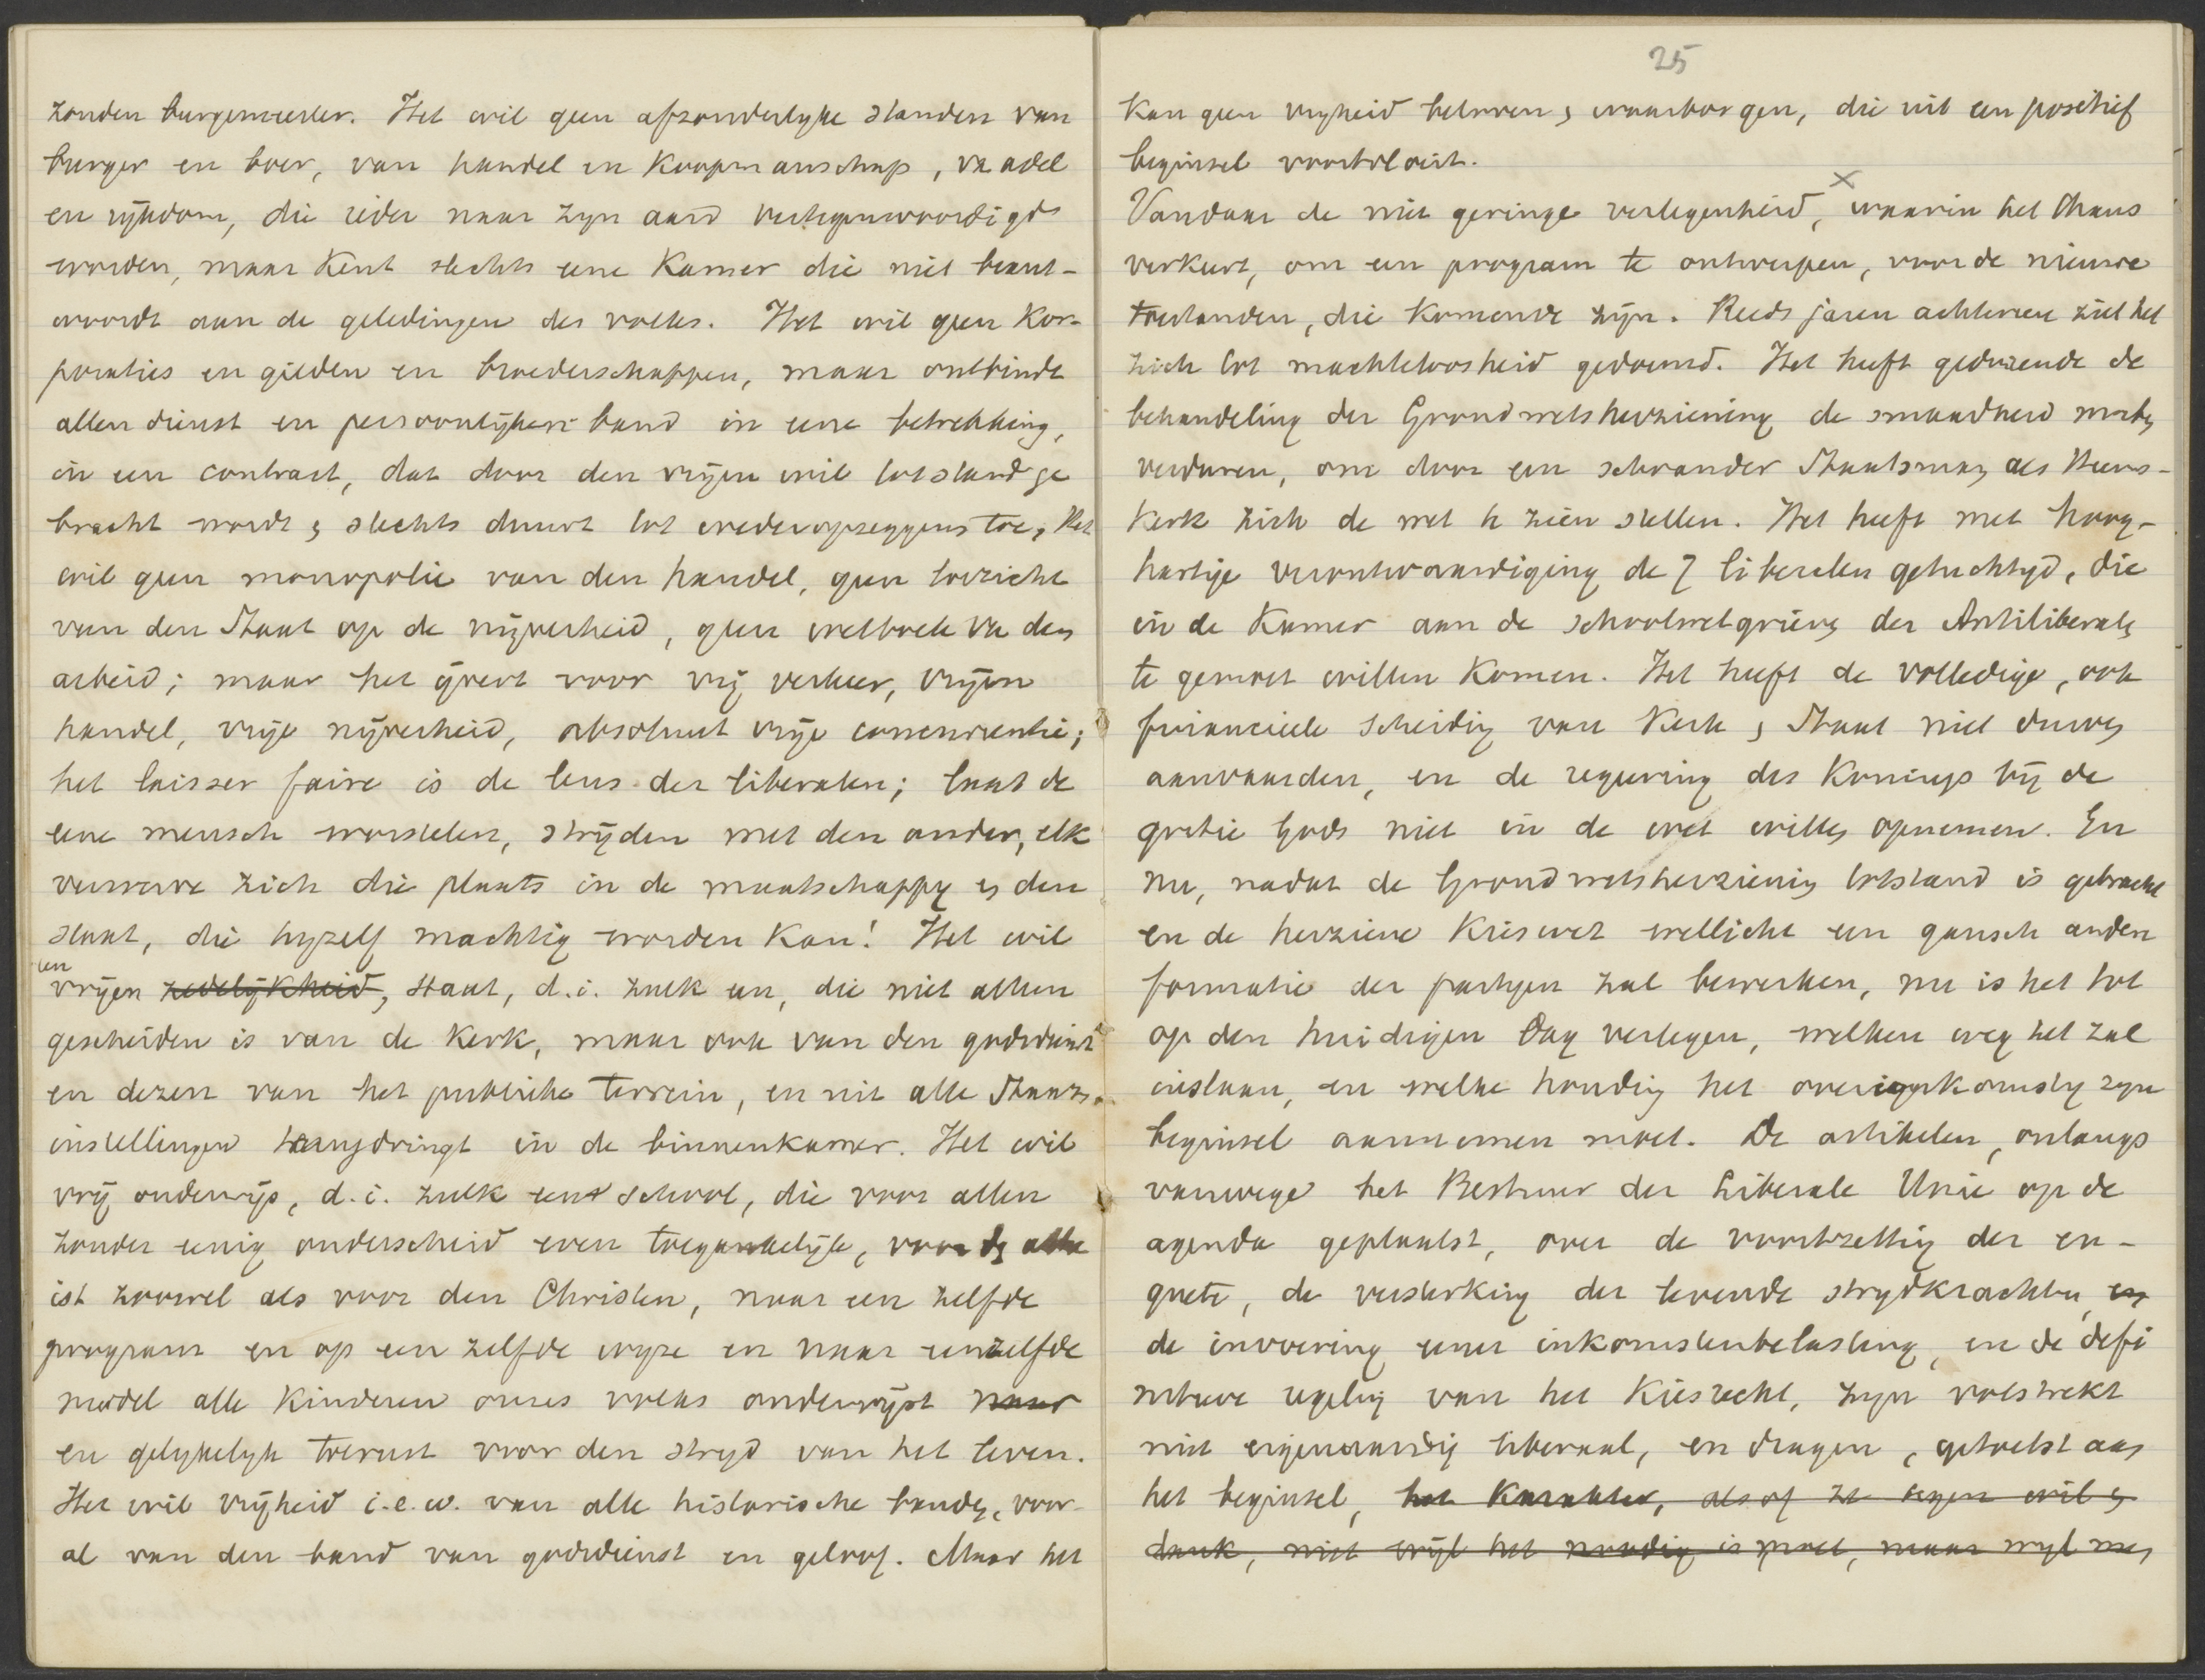 zonder burgemeester. Het wil geen afzonderlijke standen van
burger en boer, van handel en koopmanschap, va adel
en rijkdom, die ieder naar zijn aard vertegenwoordigd
worden, maar kent slechts eene Kamer die niet beant-
woordt aan de geledingen des volks. Het wil geen Kor-
poraties en gilden en broederschappen, maar ontbindt
allen dienst en persoonlijken band in eene betrekking,
in een contract, dat door den vrijen wil totstand ge
bracht wordt en slechts duurt tot wederopzeggens toe, Het
wil geen monopolie van den handel, geen toezicht
van den Staat op de nijverheid, geen wetboek va den
arbeid; maar het ijvert voor vrij verkeer, vrijen
handel, vrije nijverheid, absoluut vrije concurrentie;
het laisser faire is de leus der liberalen; laat de
eene mensch worstelen, strijden met den ander, elk
verwerve zich die plaats in de maatschappij en den
staat, die hijzelf machtig worden kan! Het wil
een
vrijen zedelijkheid, staat, d.i. zulk een, die niet alleen
gescheiden is van de Kerk, maar ook van den godsdienst
en dezen van het publieke terrein, en uit alle Staats-
instellingen terugdringt in de binnenkamer. Het wil
vrij onderwijs, d.i. zulk een school, die voor allen
zonder eenig onderscheid even toegankelijk, voor den athe
ist zoowel als voor den Christen, naar een zelfde
program en op een zelfde wijze en naar eenzelfde
model alle kinderen onzes volks onderwijst naar
en gelijkelijk toerust voor den strijd van het leven.
Het wil vrijheid i.e.w. van alle historische banden, voor-
al van den band van godsdienst en geloof. Maar het
25
kan geen vrijheid beloven en waarborgen, die uit een positief
beginsel voortvloeit.
Vandaar de niet geringe verlegenheid, waarin het thans
verkeert, om een program te ontwerpen, voor de nieuwe
toestanden, die komende zijn. Reeds jaren achtereen ziet het
zich tot machteloosheid gedoemd. Het heeft gedurende de
behandeling der Grondwetsherziening de smaadheid moeten
verduren, om door een schrander Staatsman als Heems-
kerk zich de wet te zien stellen. Het heeft met hoog-
hartige verontwaardiging de 7 liberalen getuchtigd, die
in de Kamer aan de schoolwetgrieven der Antiliberalen
te gemoet willen komen. Het heeft de volledige, ook
financieele scheiding van Kerk en Staat niet durven
aanvaarden, en de regeering des Konings bij de
gratie Gods niet in de wet willen opnemen. En
nu, nadat de Grondwetsherziening totstand is gebracht
en de herziene Kieswet wellicht een gansch andere
formatie der partijen zal bewerken, nu is het tot
op den huidigen dag verlegen, welken weg het zal
inslaan, en welke houding het overeenkomstig zijn
beginsel aannemen moet. De artikelen, onlangs
vanwege het Bestuur der Liberale Unie op de
agenda geplaatst, over de voortzetting der en-
quete, de versterking der levende strijdkrachten, en
de invoering eener inkomstenbelasting, en de defi
nitieve regeling van het Kiesrecht, zijn volstrekt
niet eigenaardig liberaal, en dragen, getoetst aan
het beginsel, het karakter, alsof ze tegen wil en
dank, niet wijl het noodig is moet, maar wijl men